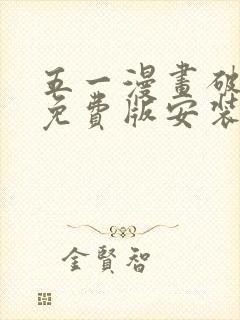 五一漫畫破
免費版安裝
金賢智